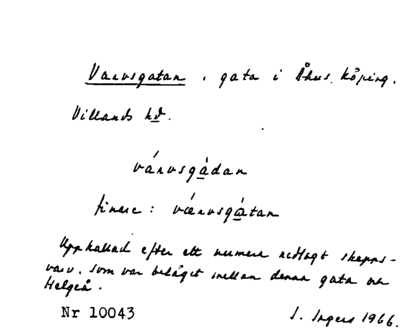 Varvsgatan, gata i Åhus köping.
Villands hd.
várvsgàdan
finare: värvsgàtan
Uppkallad efter ett numera nedlagt skepps-
varv, som var beläget mellan denna gata och
Helgeå.
Nr 10043 I. Ingers 1966.